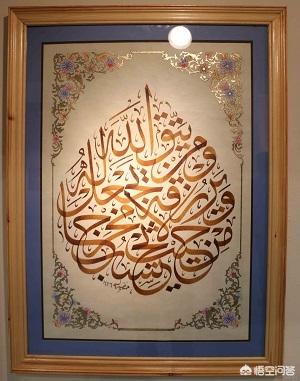 ومن يتق الله يجعل له مخرجا ويرزقه من حيث لا يحتسب
悟空问答